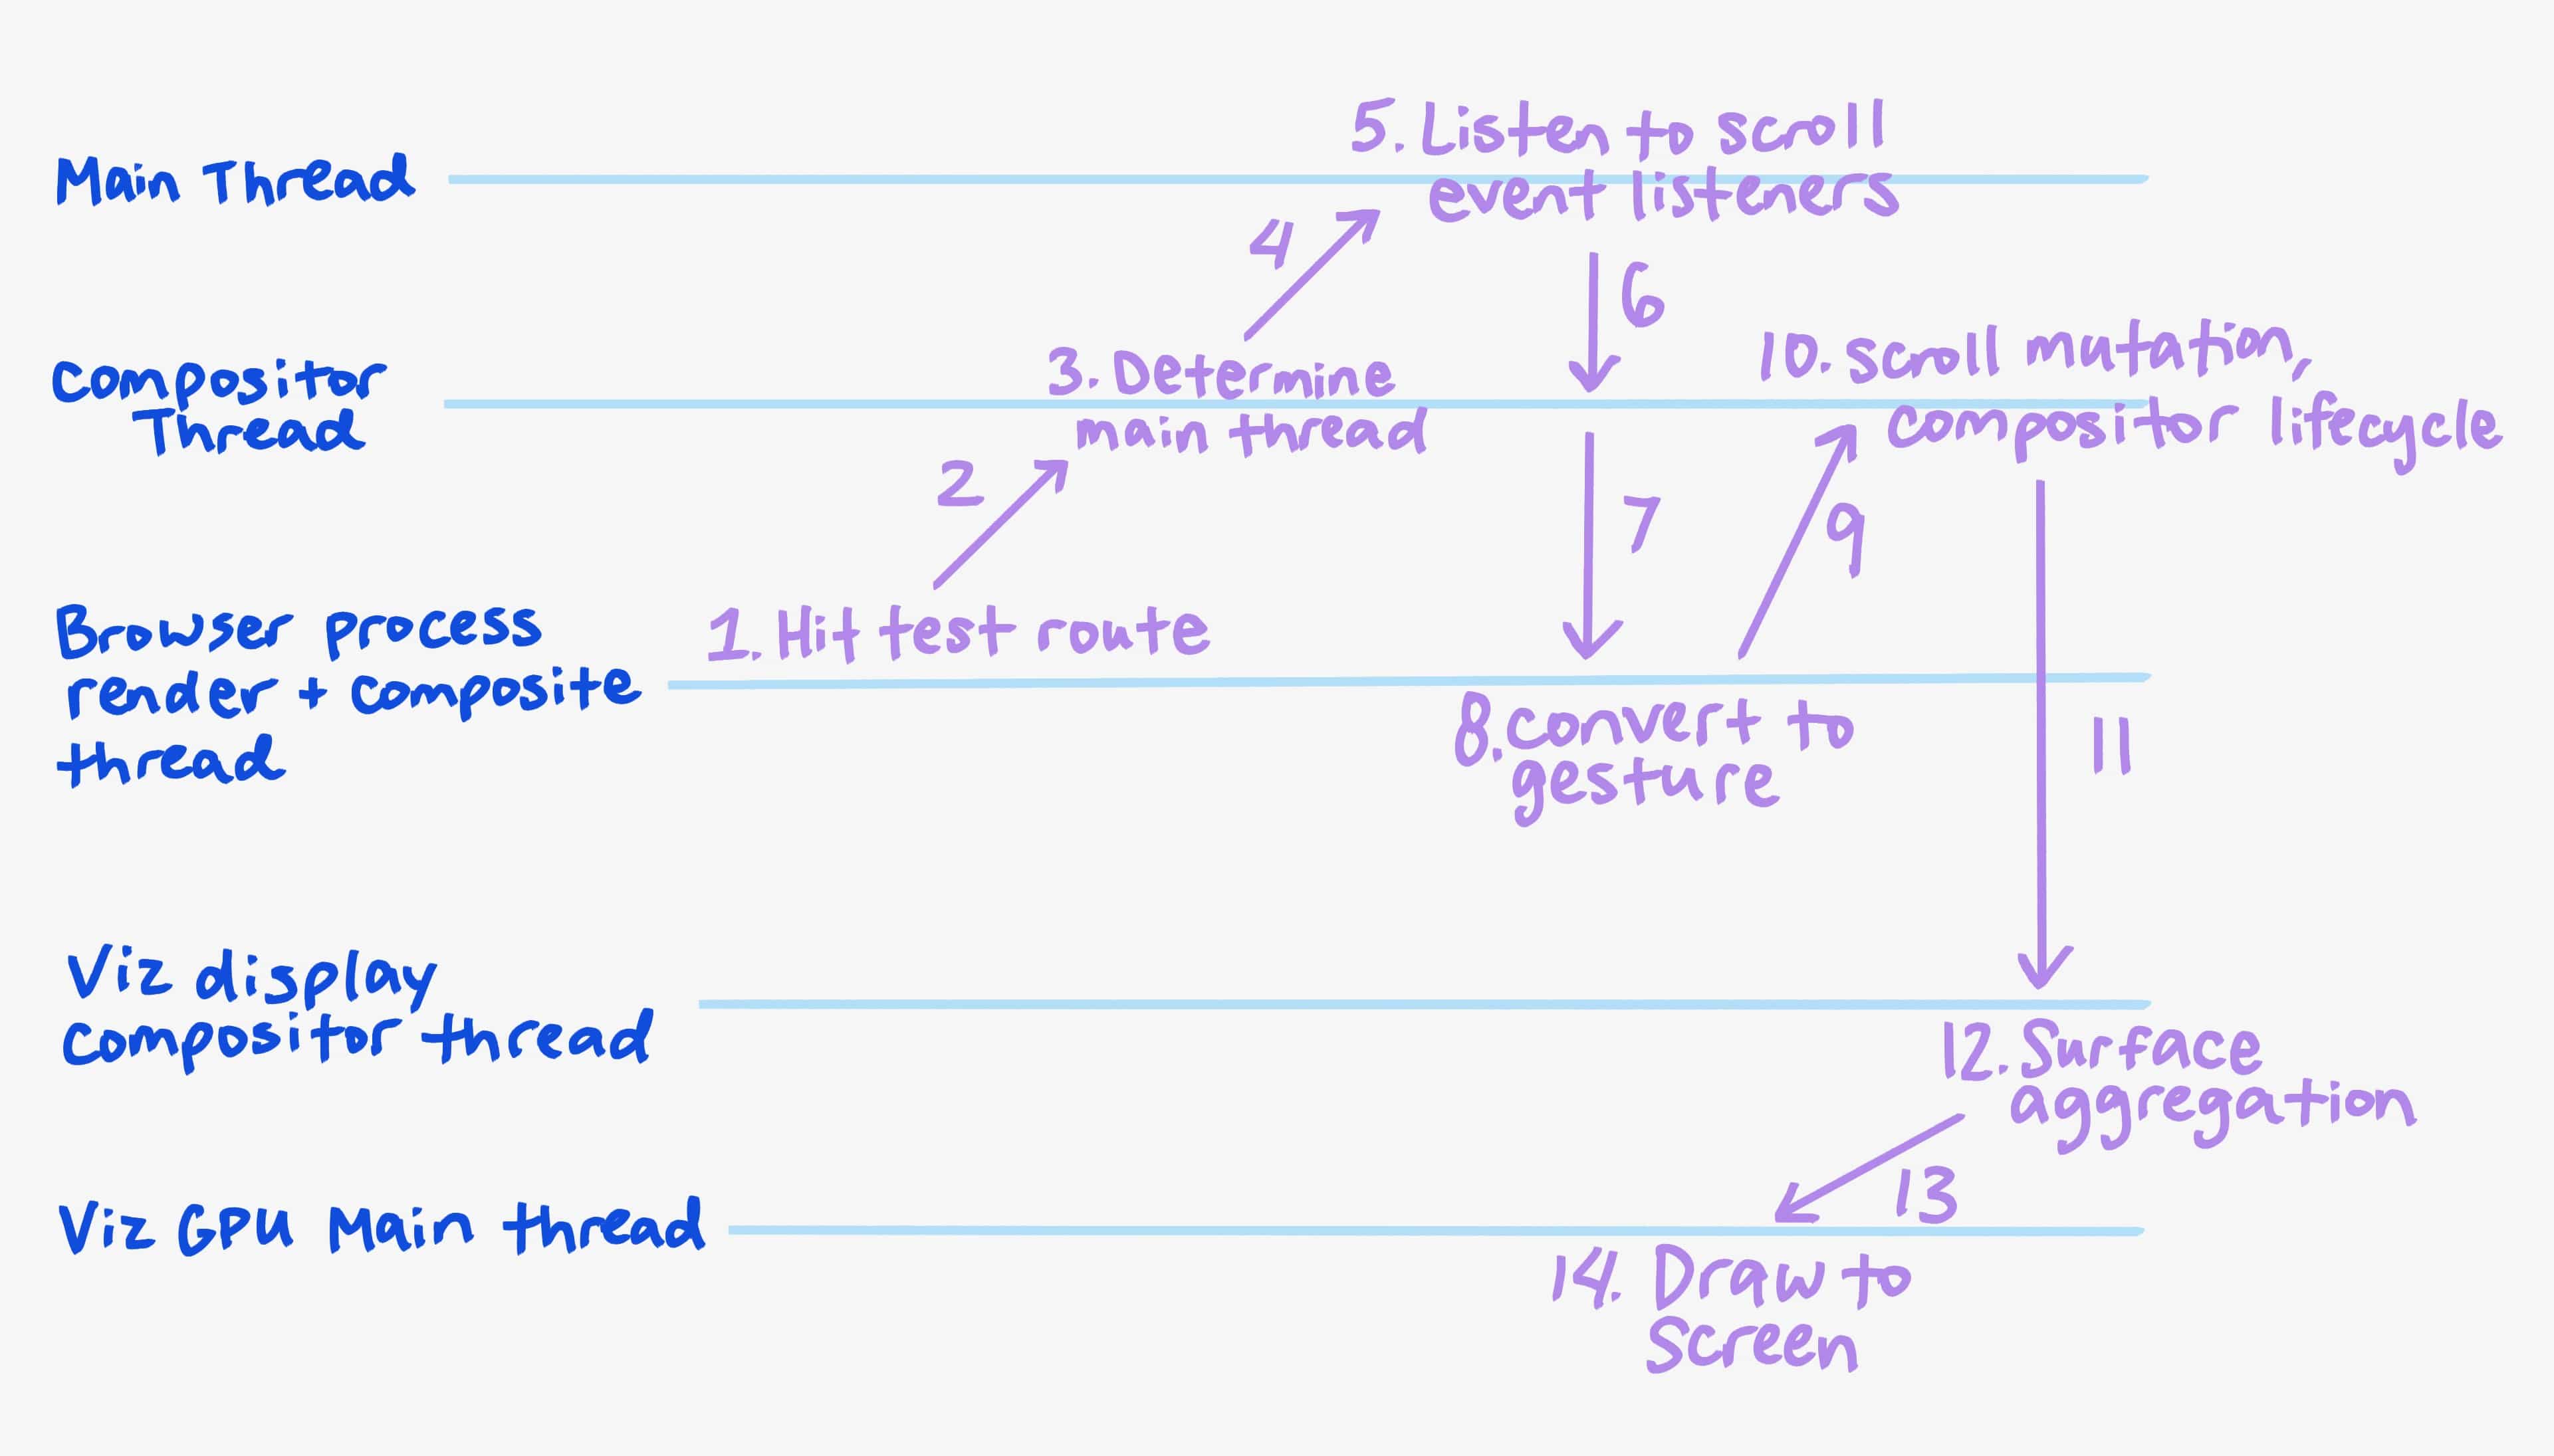 Main Thread
5. Listen to scroll
event listeners
4
6
Compositor
Thread
3. Determine
main thread
10. scroll mutation,
compositor lifecycle
2
7
9
Browser process
render + composite
thread
1. Hit test route
8. convert to
gesture
11
Viz display
compositor thread
12. Surface
aggregation
13
Viz GPU Main thread
14. Draw to
Screen